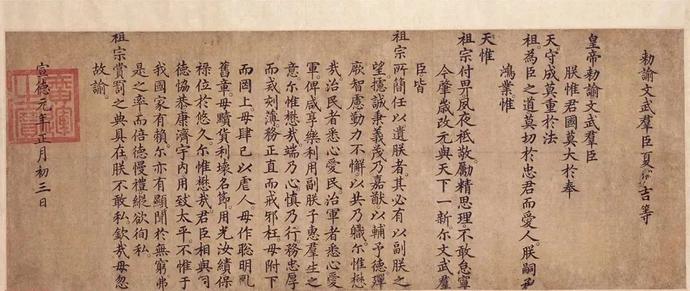 勑諭文武羣臣夏原吉等
皇帝勑諭文武羣臣
朕惟君國莫大於奉
天守成莫重於法
祖為臣之道莫切於忠君而愛人朕嗣承
鴻業惟
天惟
祖宗付畀夙夜祗敬勵精思理不敢怠寧
今肇歲改元與天下一新尔文武羣
臣皆
祖宗所簡任以遺朕者其必有以副朕之
望攄誠秉義茂乃嘉猷以輔予德殫
厥智慮勤力不懈以共乃職尔惟懋
哉治民者悉心愛民治軍者悉心愛
軍俾咸享樂利用副朕子惠羣生之
意尔惟懋哉端乃心慎乃行務忠厚
而戒刻薄務正直而戒邪枉毋附下
而罔上毋肆已以虐人毋作聰明亂
舊章毋黷貨利壞名節用光汝績保
禄位於悠久尔惟懋哉君臣相與同
德協恭康濟宇内用致太平不惟于
我國家有頼尔亦有顯聞於無窮弗
是之率而倍德慢禮縱欲徇私
祖宗賞罰之典具在朕不敢私欽哉毋忽
故諭
宣德元年正月初三日